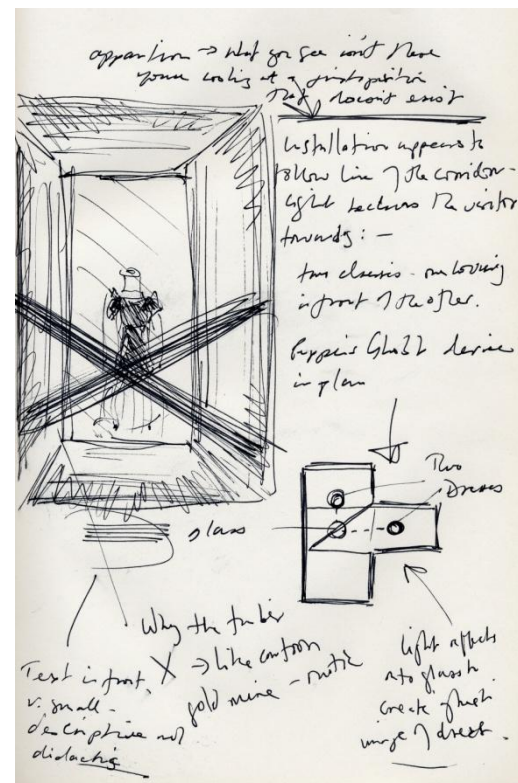 apparition → what you see isn't there
you're looking at a
that doesn't exist
Installation appears to
follow line of the corridor -
light beckons the visitor
towards : -
two dresses - one hovering
in front of the other.
Peppers Ghost device
in plan
Two
Dresses
glass
Why the timber
X → like cartoon
gold mine -
Text in front,
v. small -
descriptive not
didactic
light reflects
onto glass to
create ghost
image of dress.